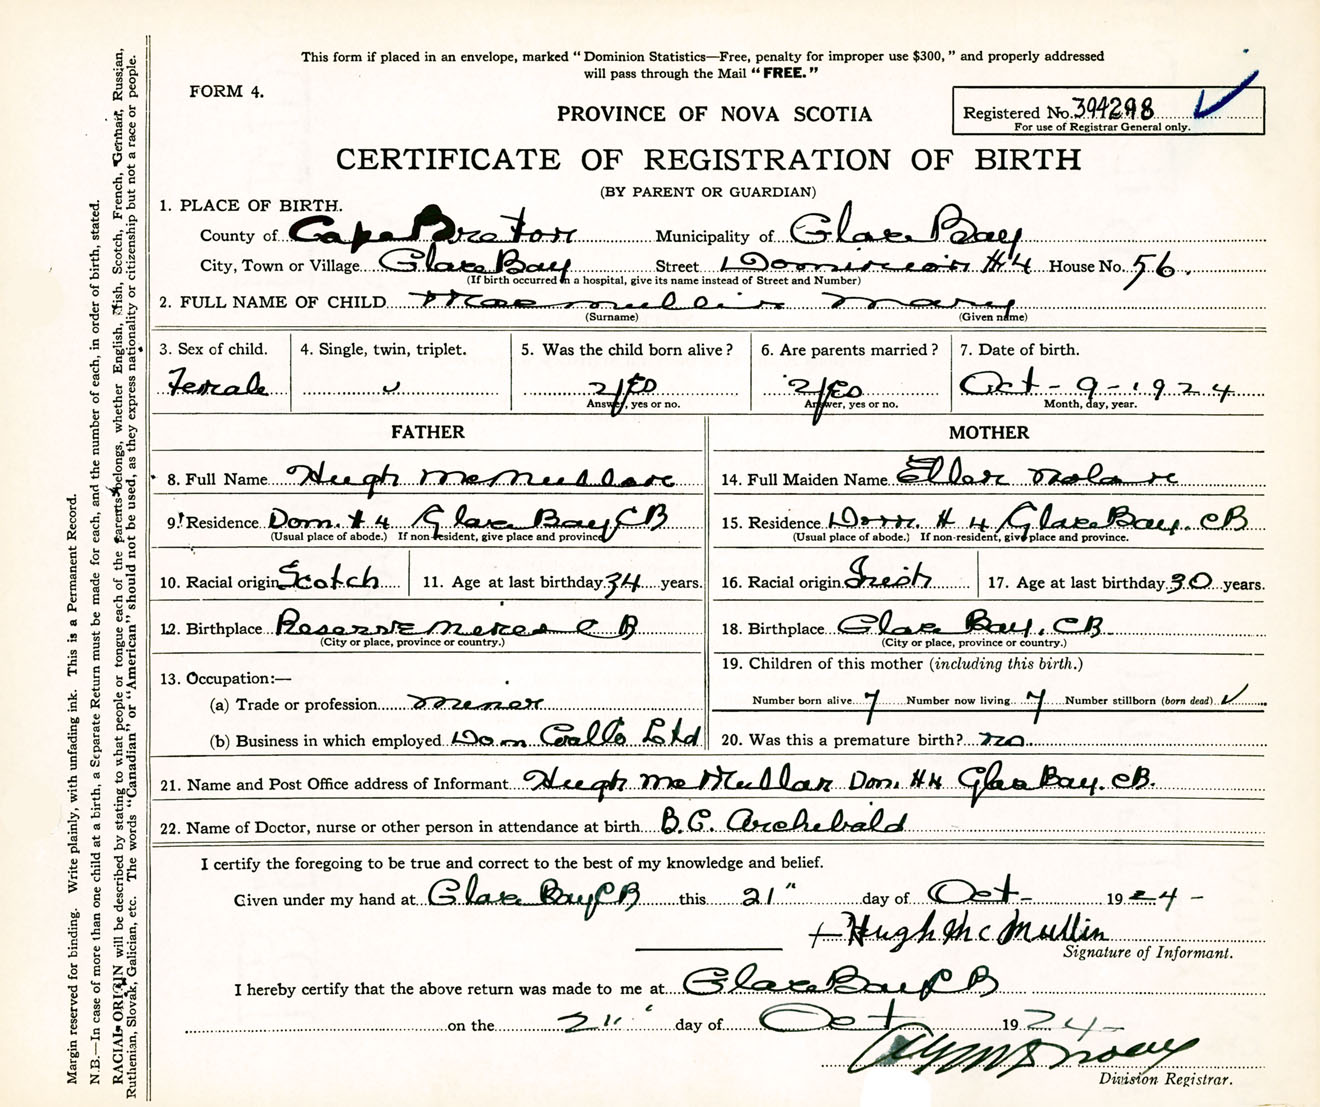 This form if placed in an envelope, marked “Dominion Statistics—Free, penalty for improper use $300,” and properly addressed
will pass through the Mail “FREE.”
FORM 4.
PROVINCE OF NOVA SCOTIA
Registered No. 394298
For use of Registrar General only.
CERTIFICATE OF REGISTRATION OF BIRTH
(BY PARENT OR GUARDIAN)
1. PLACE OF BIRTH.
County of Cape Breton Municipality of Glace Bay
City, Town or Village Glace Bay Street Dominion #4 House No. 56.
(If birth occurred in a hospital, give its name instead of Street and Number)
2. FULL NAME OF CHILD MacMullin Mary
(Surname) (Given name)
3. Sex of child. 4. Single, twin, triplet. 5. Was the child born alive? 6. Are parents married? 7. Date of birth.
Female yes yes Oct-9-1924
Answer, yes or no. Answer, yes or no. Month, day, year.
FATHER MOTHER
8. Full Name Hugh McMullan 14. Full Maiden Name Ellen
9. Residence Dom. #4 Glace Bay CB 15. Residence Dom. #4 Glace Bay. CB
(Usual place of abode.) If non-resident, give place and province (Usual place of abode.) If non-resident, give place and province.
10. Racial origin Scotch 11. Age at last birthday 34 years. 16. Racial origin Irish 17. Age at last birthday 30 years.
12. Birthplace Reserve Mines C B 18. Birthplace Glace Bay, CB.
(City or place, province or country.) (City or place, province or country.)
13. Occupation:—
19. Children of this mother (including this birth.)
(a) Trade or profession miner
Number born alive 7 Number now living 7 Number stillborn (born dead)
(b) Business in which employed Dom Coal Co Ltd 20. Was this a premature birth? no
21. Name and Post Office address of Informant Hugh McMullan Dom. #4 Glace Bay. CB.
22. Name of Doctor, nurse or other person in attendance at birth B.C. Archibald
I certify the foregoing to be true and correct to the best of my knowledge and belief.
Given under my hand at Glace Bay CB this 21" day of Oct- 1924-
Hugh Mc Mullin
Signature of Informant.
I hereby certify that the above return was made to me at Glace Bay C B
on the 21" day of Oct 1924-
Division Registrar.
Margin reserved for binding. Write plainly, with unfading ink. This is a Permanent Record.
N.B.—In case of more than one child at a birth, a Separate Return must be made for each, and the number of each, in order of birth, stated.
RACIAL ORIGIN will be described by stating to what people or tongue each of the parents belongs, whether English, Irish, Scotch, French, German, Russian,
Ruthenian, Slovak, Galician, etc. The words “Canadian” or “American” should not be used, as they express nationality or citizenship but not a race or people.